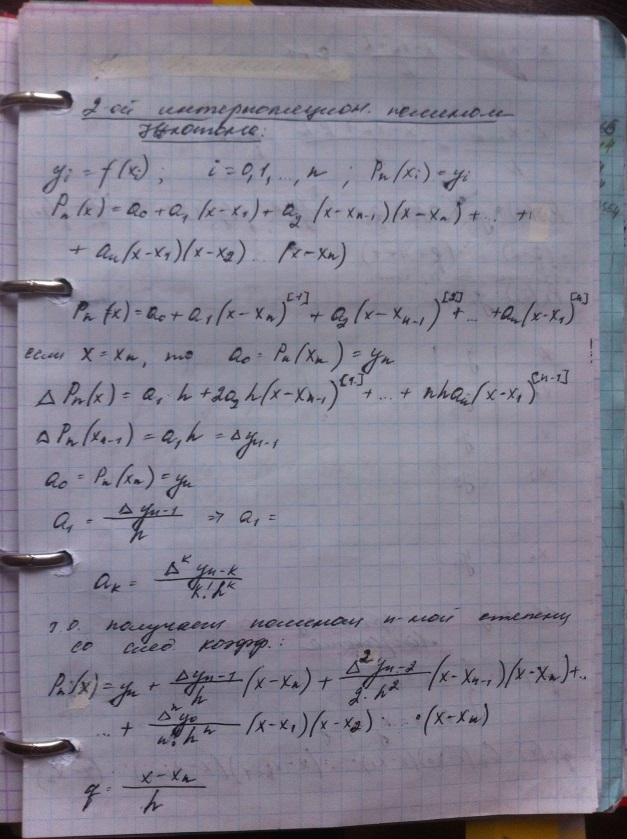 2-ой интерполяцион. полином
Ньютона:
yi = f(xi); i = 0,1,...,n; Pn(xi) = yi
Pn(x) = a0 + a1 (x-x1) + a2 (x-xn-1)(x-xn) + ... +
+ an(x-x1)(x-x2) ... (x-xn)
Pn(x) = a0 + a1(x-xn)^[1] + a2(x-xn-1)^[2] + ... + an(x-x1)^[n]
если x = xn, то a0 = Pn(xn) = yn
Δ Pn(x) = a1·h + 2a2h(x-xn-1)^[1] + ... + nhan(x-x1)^[n-1]
Δ Pn(xn-1) = a1h = Δyn-1
a0 = Pn(xn) = yn
a1 = Δyn-1 / h ⇒ a1 =
ak = Δ^k yn-k / k!h^k
т.о. получаем полином n-ной степени
со след коэфф.:
Pn(x) = yn + Δyn-1 / h (x-xn) + Δ^2 yn-2 / 2·h^2 (x-xn-1)(x-xn) + ..
... + Δ^n y0 / n! h^n (x-x1)(x-x2) · ... · (x-xn)
q = x-xn / h